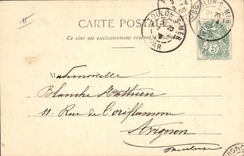 CARTE POSTALE
Ce côté est exclusivement réservé à l'adresse
TOULON-S-MER
VAR
5
Mademoiselle
Blanche Mathieu
11 Rue de l'oriflamme
Avignon
Vaucluse